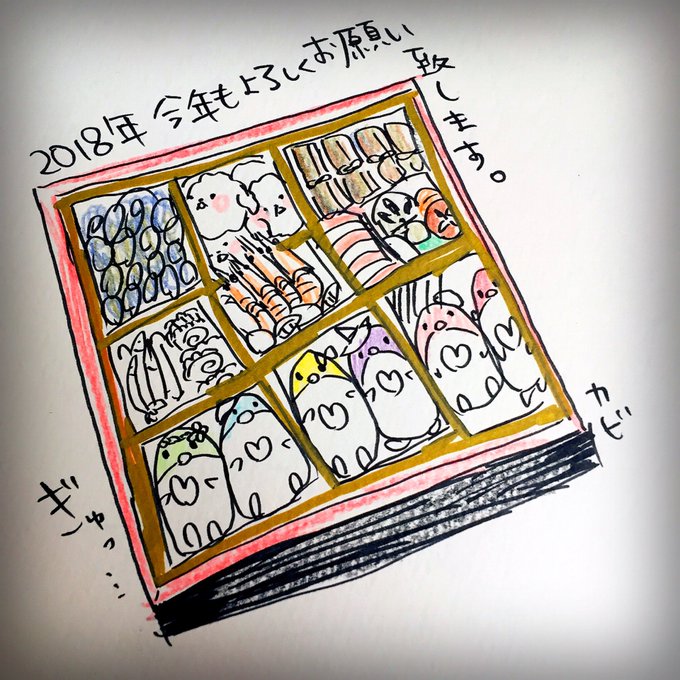 2018年 今年もよろしくお願い致します。
カビ
ギュッ…